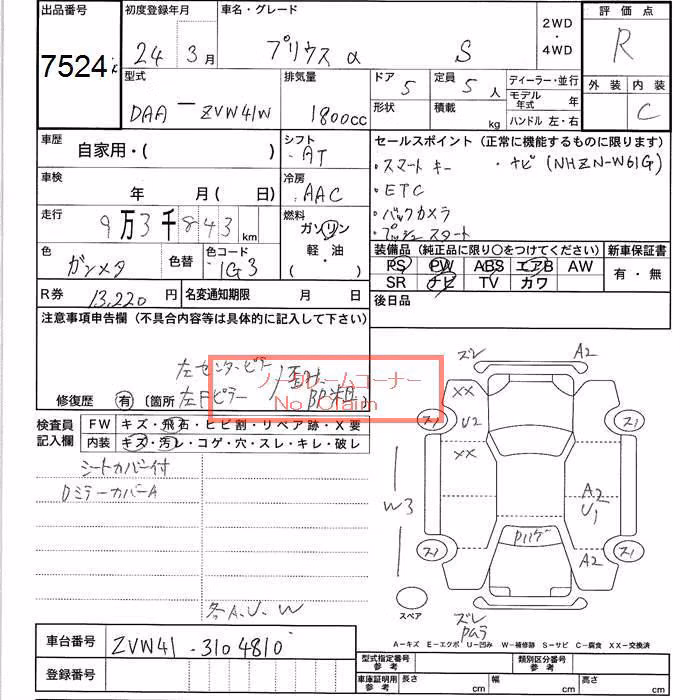 出品番号 初度登録年月 車名・グレード 2WD・4WD 評価点
7524 24 3月 プリウス α S R
型式 排気量 ドア 5 定員 5 人 ディーラー・並行 外装 内装
DAA - ZVW41W 1800cc 形状 積載 kg モデル年式 年 C
ハンドル 左・右
車歴 自家用・( ) シフト AT セールスポイント (正常に機能するものに限ります)
・スマートキー ・ナビ (NHZN-W61G)
車検 年 月( 日) 冷房 AAC ・ETC
・バックカメラ
走行 9万3千843 km 燃料 ガソリン ・プッシュスタート
軽・油
( ・ )
色 ガンメタ 色替 色コード 1G3 装備品 (純正品に限り○をつけてください) 新車保証書
PS PW ABS エアB AW 有・無
R券 13,220 円 名変通知期限 月 日 SR ナビ TV カワ
後日品
注意事項申告欄 (不具合内容等は具体的に記入して下さい)
左センターピラー
修復歴 有 〔箇所 左Fピラー
ノークレームコーナー
No Claim
検査員記入欄 FW キズ・飛石・ヒビ割・リペア跡・X要
内装 キズ・汚レ・コゲ・穴・スレ・キレ・破レ
シートカバー付
DミラーカバーA
各A.U.W
ズレ A2
XX
ズ1 U2 ズ1
XX
W3 A2
U1
ズ1 ズ1
A2
スペア ズレ
A－キズ E－エクボ U－凹み W－補修跡 S－サビ C－腐食 XX－交換済
車台番号 ZVW41-3104810
型式指定番号 参考 類別区分番号 参考
登録番号 車庫証明用 参考 長さ cm 幅 cm 高さ cm